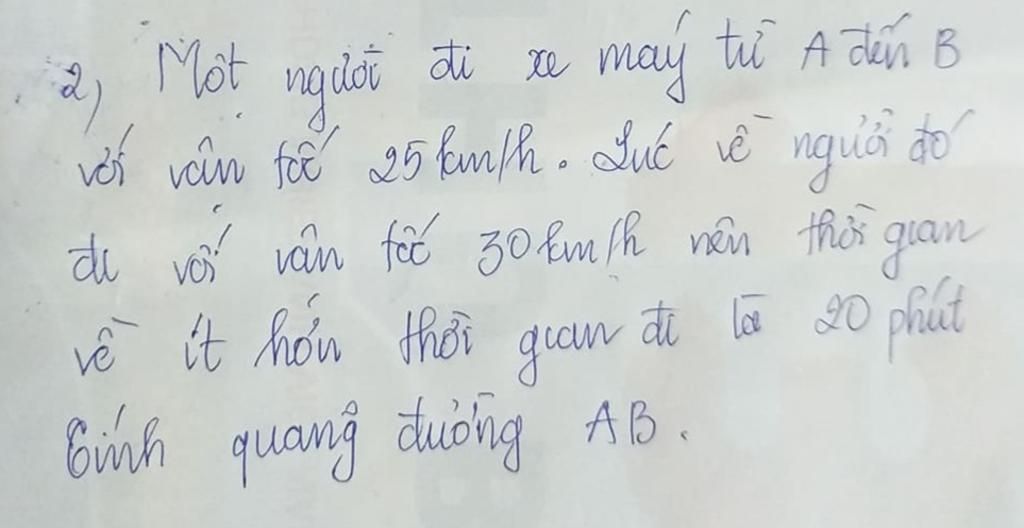 2) Một người đi xe máy từ A đến B
với vận tốc 25 km/h. Lúc về người đó
đi với vận tốc 30 km/h nên thời gian
về ít hơn thời gian đi là 20 phút
Tính quãng đường AB.